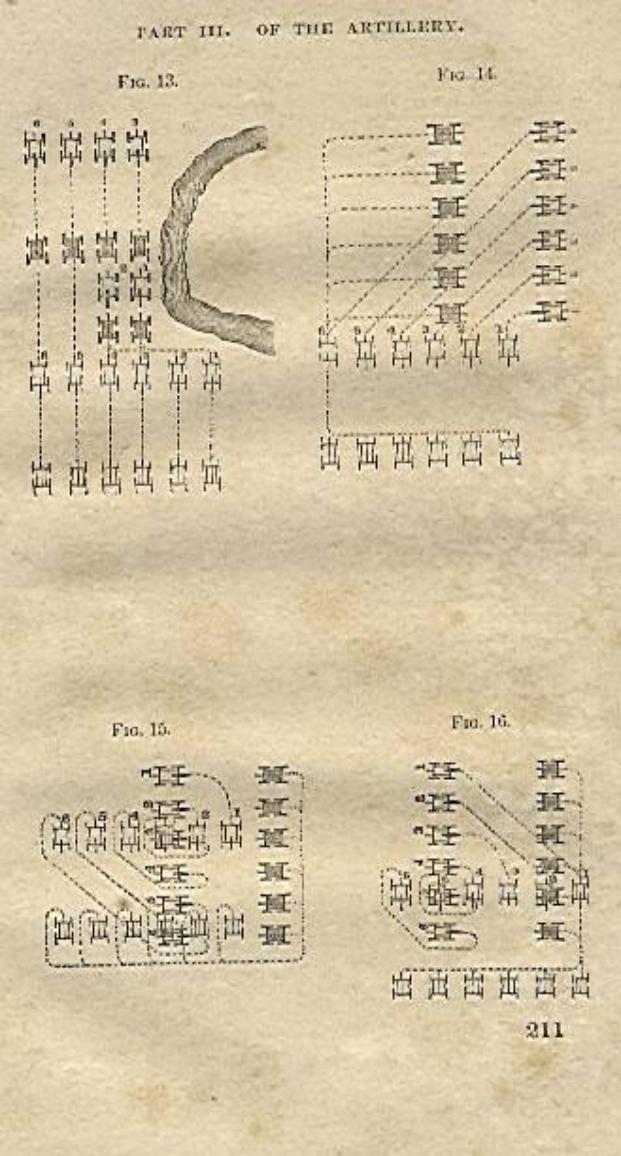 PART III. OF THE ARTILLERY.
FIG. 13.
FIG. 14.
FIG. 15.
FIG. 16.
211